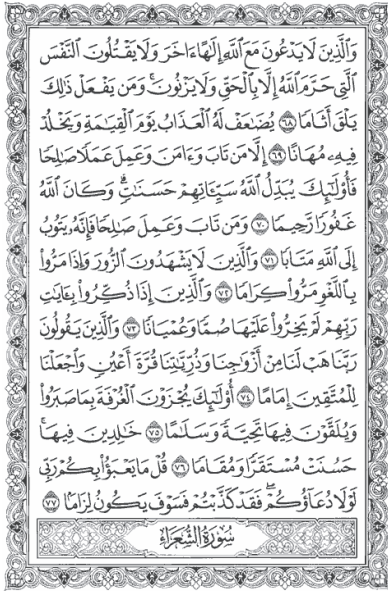 وَٱلَّذِينَ لَا يَدْعُونَ مَعَ ٱللَّهِ إِلَٰهًا ءَاخَرَ وَلَا يَقْتُلُونَ ٱلنَّفْسَ
ٱلَّتِى حَرَّمَ ٱللَّهُ إِلَّا بِٱلْحَقِّ وَلَا يَزْنُونَ ۚ وَمَن يَفْعَلْ ذَٰلِكَ
يَلْقَ أَثَامًا ٦٨ يُضَٰعَفْ لَهُ ٱلْعَذَابُ يَوْمَ ٱلْقِيَٰمَةِ وَيَخْلُدْ
فِيهِۦ مُهَانًا ٦٩ إِلَّا مَن تَابَ وَءَامَنَ وَعَمِلَ عَمَلًا صَٰلِحًا
فَأُو۟لَٰٓئِكَ يُبَدِّلُ ٱللَّهُ سَيِّـَٔاتِهِمْ حَسَنَٰتٍ ۗ وَكَانَ ٱللَّهُ
غَفُورًا رَّحِيمًا ٧٠ وَمَن تَابَ وَعَمِلَ صَٰلِحًا فَإِنَّهُۥ يَتُوبُ
إِلَى ٱللَّهِ مَتَابًا ٧١ وَٱلَّذِينَ لَا يَشْهَدُونَ ٱلزُّورَ وَإِذَا مَرُّوا۟
بِٱللَّغْوِ مَرُّوا۟ كِرَامًا ٧٢ وَٱلَّذِينَ إِذَا ذُكِّرُوا۟ بِـَٔايَٰتِ
رَبِّهِمْ لَمْ يَخِرُّوا۟ عَلَيْهَا صُمًّا وَعُمْيَانًا ٧٣ وَٱلَّذِينَ يَقُولُونَ
رَبَّنَا هَبْ لَنَا مِنْ أَزْوَٰجِنَا وَذُرِّيَّٰتِنَا قُرَّةَ أَعْيُنٍ وَٱجْعَلْنَا
لِلْمُتَّقِينَ إِمَامًا ٧٤ أُو۟لَٰٓئِكَ يُجْزَوْنَ ٱلْغُرْفَةَ بِمَا صَبَرُوا۟
وَيُلَقَّوْنَ فِيهَا تَحِيَّةً وَسَلَٰمًا ٧٥ خَٰلِدِينَ فِيهَا ۚ
حَسُنَتْ مُسْتَقَرًّا وَمُقَامًا ٧٦ قُلْ مَا يَعْبَؤُا۟ بِكُمْ رَبِّى
لَوْلَا دُعَآؤُكُمْ ۖ فَقَدْ كَذَّبْتُمْ فَسَوْفَ يَكُونُ لِزَامًۢا ٧٧
سُورَةُ ٱلشُّعَرَاءِ